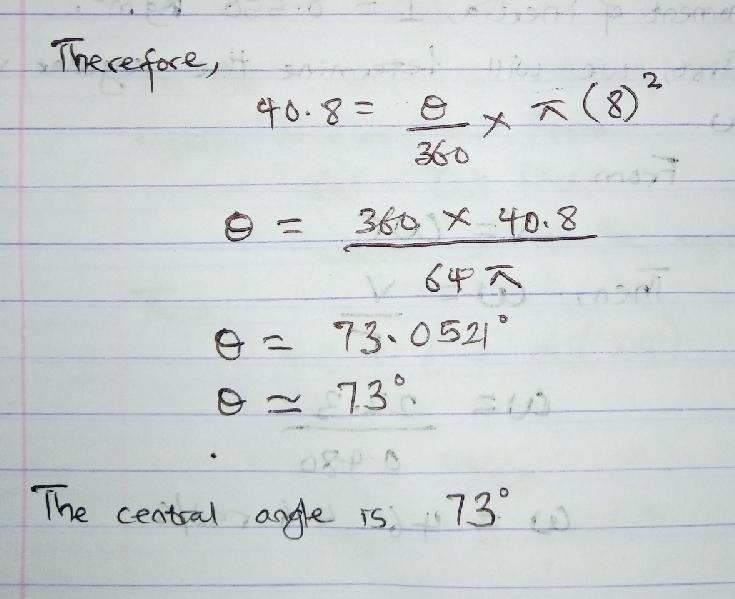 Therefore,
40.8 = θ/360 × π (8)²
θ = 360 × 40.8 / 64 π
θ = 73.0521°
θ ≃ 73°
The central angle is 73°